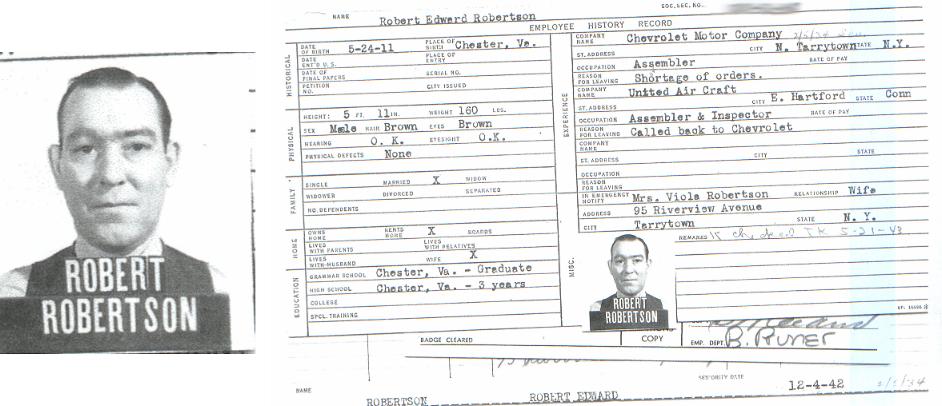 ROBERT
ROBERTSON
SOC. SEC. NO.
NAME Robert Edward Robertson
EMPLOYEE HISTORY RECORD
HISTORICAL
DATE OF BIRTH 5-24-11 PLACE OF BIRTH Chester, Va.
DATE ENT'D U.S. PLACE OF ENTRY
DATE OF FINAL PAPERS SERIAL NO.
PETITION NO. CITY ISSUED
PHYSICAL
HEIGHT: 5 FT. 11 IN. WEIGHT 160 LBS.
SEX Male HAIR Brown EYES Brown
HEARING O. K. EYESIGHT O.K.
PHYSICAL DEFECTS None
FAMILY
SINGLE MARRIED X WIDOW
WIDOWER DIVORCED SEPARATED
NO. DEPENDENTS
HOME
OWNS HOME RENTS HOME X BOARDS
LIVES WITH PARENTS LIVES WITH RELATIVES
LIVES WITH-HUSBAND WIFE X
EDUCATION
GRAMMAR SCHOOL Chester, Va. - Graduate
HIGH SCHOOL Chester, Va. - 3 years
COLLEGE
SPCL. TRAINING
EXPERIENCE
COMPANY NAME Chevrolet Motor Company
ST. ADDRESS CITY N. Tarrytown STATE N.Y.
OCCUPATION Assembler RATE OF PAY
REASON FOR LEAVING Shortage of orders.
COMPANY NAME United Air Craft
ST. ADDRESS CITY E. Hartford STATE Conn
OCCUPATION Assembler & Inspector RATE OF PAY
REASON FOR LEAVING Called back to Chevrolet
COMPANY NAME
ST. ADDRESS CITY STATE
OCCUPATION
REASON FOR LEAVING
MISC.
IN EMERGENCY NOTIFY Mrs. Viola Robertson RELATIONSHIP Wife
ADDRESS 95 Riverview Avenue
CITY Tarrytown STATE N. Y.
REMARKS 5-21-43
ROBERT
ROBERTSON
BADGE CLEARED COPY EMP. DEPT. B. Runer
SENIORITY DATE
12-4-42 2/5/34
NAME ROBERTSON ROBERT EDWARD